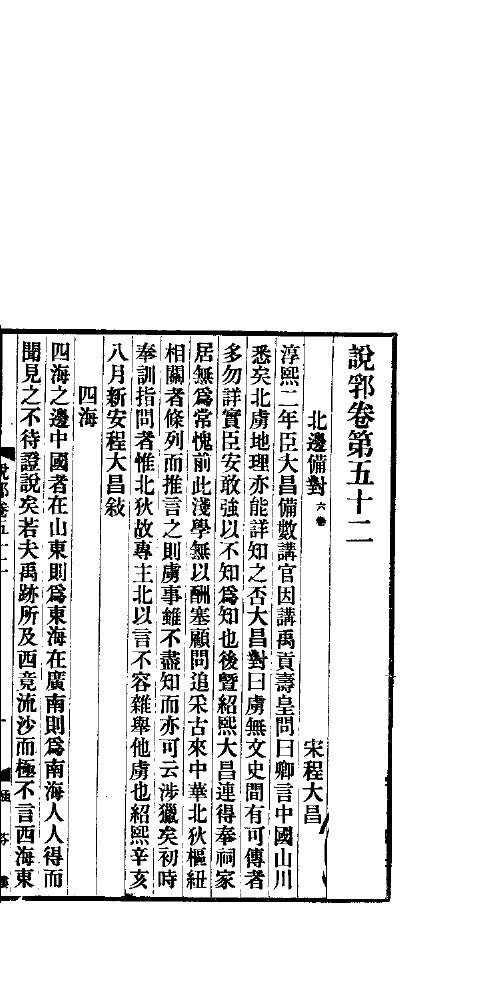 說郛卷第五十二
北邊備對 六卷 宋程大昌
淳熙二年臣大昌備數講官因講禹貢壽皇問曰卿言中國山川
悉矣北虜地理亦能詳知之否大昌對曰虜無文史間有可傳者
多勿詳實臣安敢強以不知爲知也後暨紹熙大昌連得奉祠家
居無爲常愧前此淺學無以酬塞顧問追采古來中華北狄樞紐
相關者條列而推言之則虜事雖不盡知而亦可云涉獵矣初時
奉訓指問者惟北狄故專主北以言不容雜舉他虜也紹熙辛亥
八月新安程大昌敍
四海
四海之邊中國者在山東則爲東海在廣南則爲南海人人得而
聞見之不待證說矣若夫禹跡所及西竟流沙而極不言西海東
說郛卷五十二 一